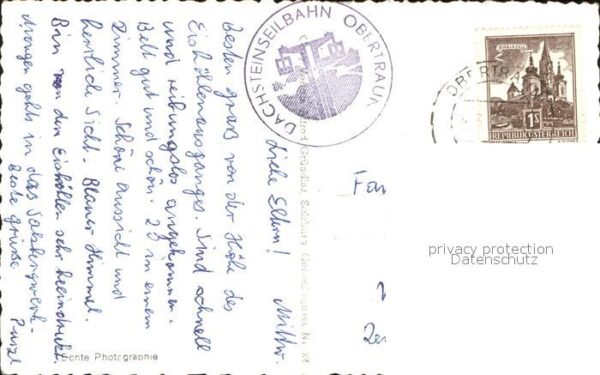 Mittw.
Liebe Eltern!
Besten Gruss von der Höhe des
Eishöhlenausganges. Sind schnell
und reibungslos angekommen.
Bett gut und schön. 2 in einem
Zimmer. Schöne Aussicht und
herrliche Sicht. Blauer Himmel.
Bin von den Eishöhlen sehr beeindruckt.
Morgen gehts in das Salzbergwerk.
Beste Grüße
DACHSTEINSEILBAHN OBERTRAUN
OBERTRA
1S
REPUBLIK ÖSTERREICH
Fam
privacy protection
Datenschutz
Echte Photographie